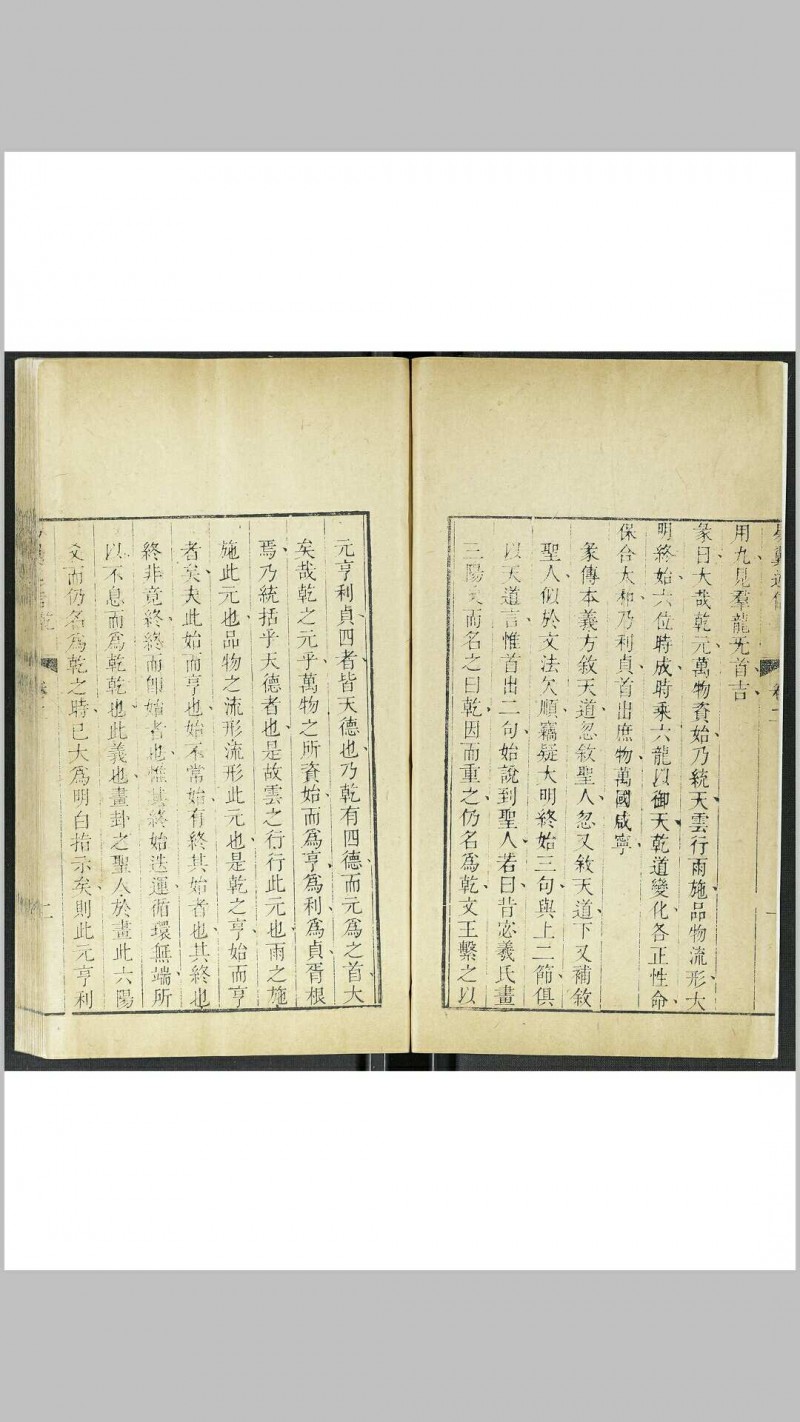 用九見羣龍无首吉
彖曰大哉乾元萬物資始乃統天雲行雨施品物流形大
明終始六位時成時乘六龍以御天乾道變化各正性命
保合大和乃利貞首出庶物萬國咸寧
彖傳本義方敘天道忽敘聖人忽又敘天道下又補敘
聖人似於文法欠順竊疑大明終始三句與上二節俱
以天道言惟首出二句始說到聖人若曰昔宓羲氏畫
三陽爻而名之曰乾因而重之仍名爲乾文王繫之以
元亨利貞四者皆天德也乃乾有四德而元爲之首大
矣哉乾之元乎萬物之所資始而爲亨爲利爲貞胥根
焉乃統括乎天德者也是故雲之行行此元也雨之施
施此元也品物之流形流形此元也是乾之亨始而亨
者矣夫此始而亨也始不常始有終其始者也其終也
終非竟終終而卽始者也惟其終始迭運循環無端所
以不息而爲乾乾也此義也畫卦之聖人於畫此六陽
爻而仍名爲乾之時已大爲明白指示矣則此元亨利